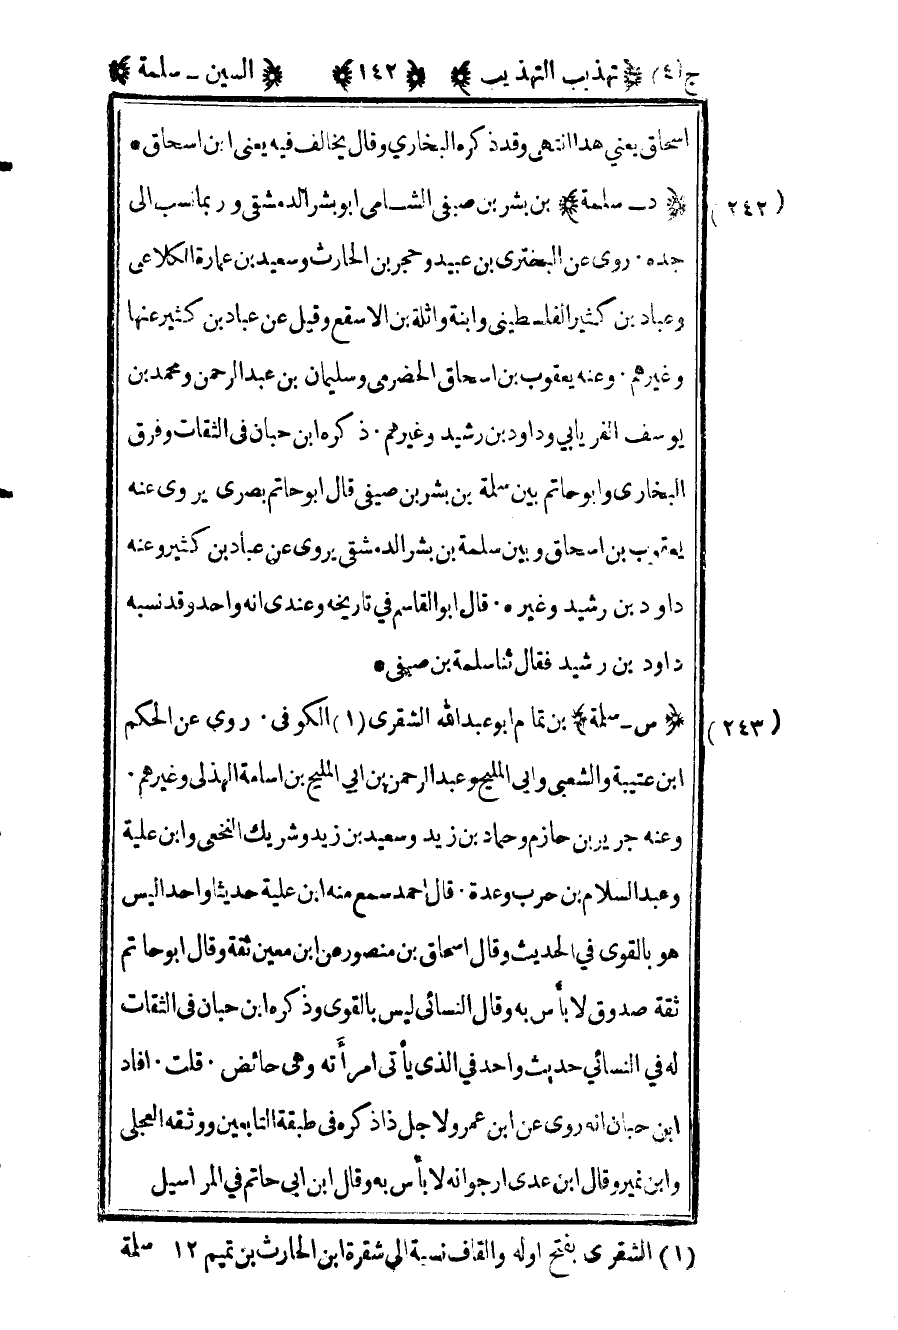 ج(٤) ﴿تهذيب التهذيب﴾ ﴿١٤٢﴾ ﴿السين ـ سلمة﴾
اسحاق يعني هذا انتهى وقد ذكره البخاري وقال يخالف فيه يعنى ابن اسحاق •
(٢٤٢) ﴿د ـ سلمة﴾ بن بشر بن صيفى الشامى ابو بشر الدمشقى وربما نسب الى
جده · روى عن البخترى بن عبيد وحجر بن الحارث وسعيد بن عمارة الكلاعى
وعباد بن كثير الفلسطينى وابنة واثلة بن الاسقع وقيل عن عباد بن كثير عنها
وغيرهم · وعنه يعقوب بن اسحاق الحضرمى وسليمان بن عبد الرحمن ومحمد بن
يوسف الفريابي وداود بن رشيد وغيرهم · ذكره ابن حبان فى الثقات وفرق
البخارى وابو حاتم بين سلمة بن بشر بن صيفى قال ابو حاتم بصرى يروى عنه
يعقوب بن اسحاق وبين سلمة بن بشر الدمشقى يروى عن عباد بن كثير وعنه
داود بن رشيد وغيره · قال ابو القاسم في تاريخه وعندى انه واحد وقد نسبه
داود بن رشيد فقال ثنا سلمة بن صيفى •
(٢٤٣) ﴿س ـ سلمة﴾ بن تمام ابو عبد الله الشقرى (١) الكوفى · روي عن الحكم
ابن عتيبة والشعبى وابي المليح وعبد الرحمن بن ابي المليح بن اسامة الهذلى وغيرهم ·
وعنه جرير بن حازم وحماد بن زيد وسعيد بن زيد وشريك النخعى وابن علية
وعبد السلام بن حرب وعدة · قال احمد سمع منه ابن علية حديثا واحدا ليس
هو بالقوى في الحديث وقال اسحاق بن منصور عن ابن معين ثقة وقال ابو حاتم
ثقة صدوق لا بأس به وقال النسائى ليس بالقوى وذكره ابن حبان فى الثقات
له في النسائي حديث واحد في الذى يأتى امرأته وهى حائض · قلت · افاد
ابن حبان انه روى عن ابن عمر ولاجل ذا ذكره فى طبقة التابعين ووثقه العجلى
وابن نمير وقال ابن عدى ارجو انه لا بأس به وقال ابن ابى حاتم في المراسيل
(١) الشقرى بفتح اوله والقاف نسبة الي شقرة ابن الحارث بن تميم ١٢ سلمة